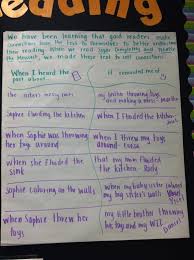 eading
We have been learning that good readers make
connections from the text to themselves to better understand
their reading. While we read Sophie
the Messiest, we made these text to self connections:
When I heard the part about...
it reminded me of
the sisters messy room
my brother throwing toys and making a mess
Sophie flooding the kitchen
when I flooded the kitchen
when Sophie was throwing her toys around
when I threw my toys around
when she flooded the sink
that my mom flooded the kitchen
Sophie coloring on the walls
when my baby sister colored my big sister's walls
when Sophie threw her toys
my little brother throwing his toy and my WII